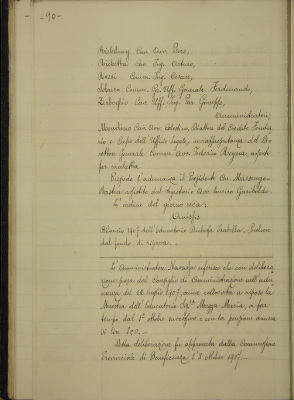 - 90 -
Cav. Avv. Piero,
Cav. Ing. Arturo,
Rossi Comm. Ing. Cesare,
Comm. Gr. Uff. Generale Ferdinando,
Cav. Uff. Ing. Pier Giuseppe,
Amministratori,
Cav. Avv. Direttore del Credito Fondia-
rio e Capo dell'Ufficio legale, in rappresentanza del Di-
rettore Generale Comm. Avv. Federico assente
per malattia.
Presiede l'adunanza il Presidente On.
assistito dal Segretario Avv. Enrico Garibaldi.
L'ordine del giorno reca:
Omissis
Bilancio 1907 dell'Educatorio Duchessa Isabella - Prelievo
dal fondo di riserva.
L'Amministratore riferisce che con delibera-
zione presa dal Consiglio di Amministrazione nell'adu-
nanza del 22 luglio 1907, venne collocata a riposo la
Maestra dell'Educatorio Sig.ra Maria, a far
tempo dal 1° Ottobre successivo e con la pensione annua
di Lire 820.-
Detta deliberazione fu approvata dalla Commissione
Provinciale di Beneficenza il 3 Ottobre 1907.-